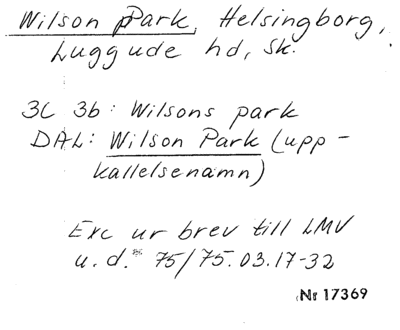 Wilson Park, Helsingborg,
Luggude hd, Sk.
3C 3b: Wilsons park
DAL: Wilson Park (upp-
kallelsenamn)
Exc ur brev till LMV
u.d. 75/75.03.17-32
Nr 17369